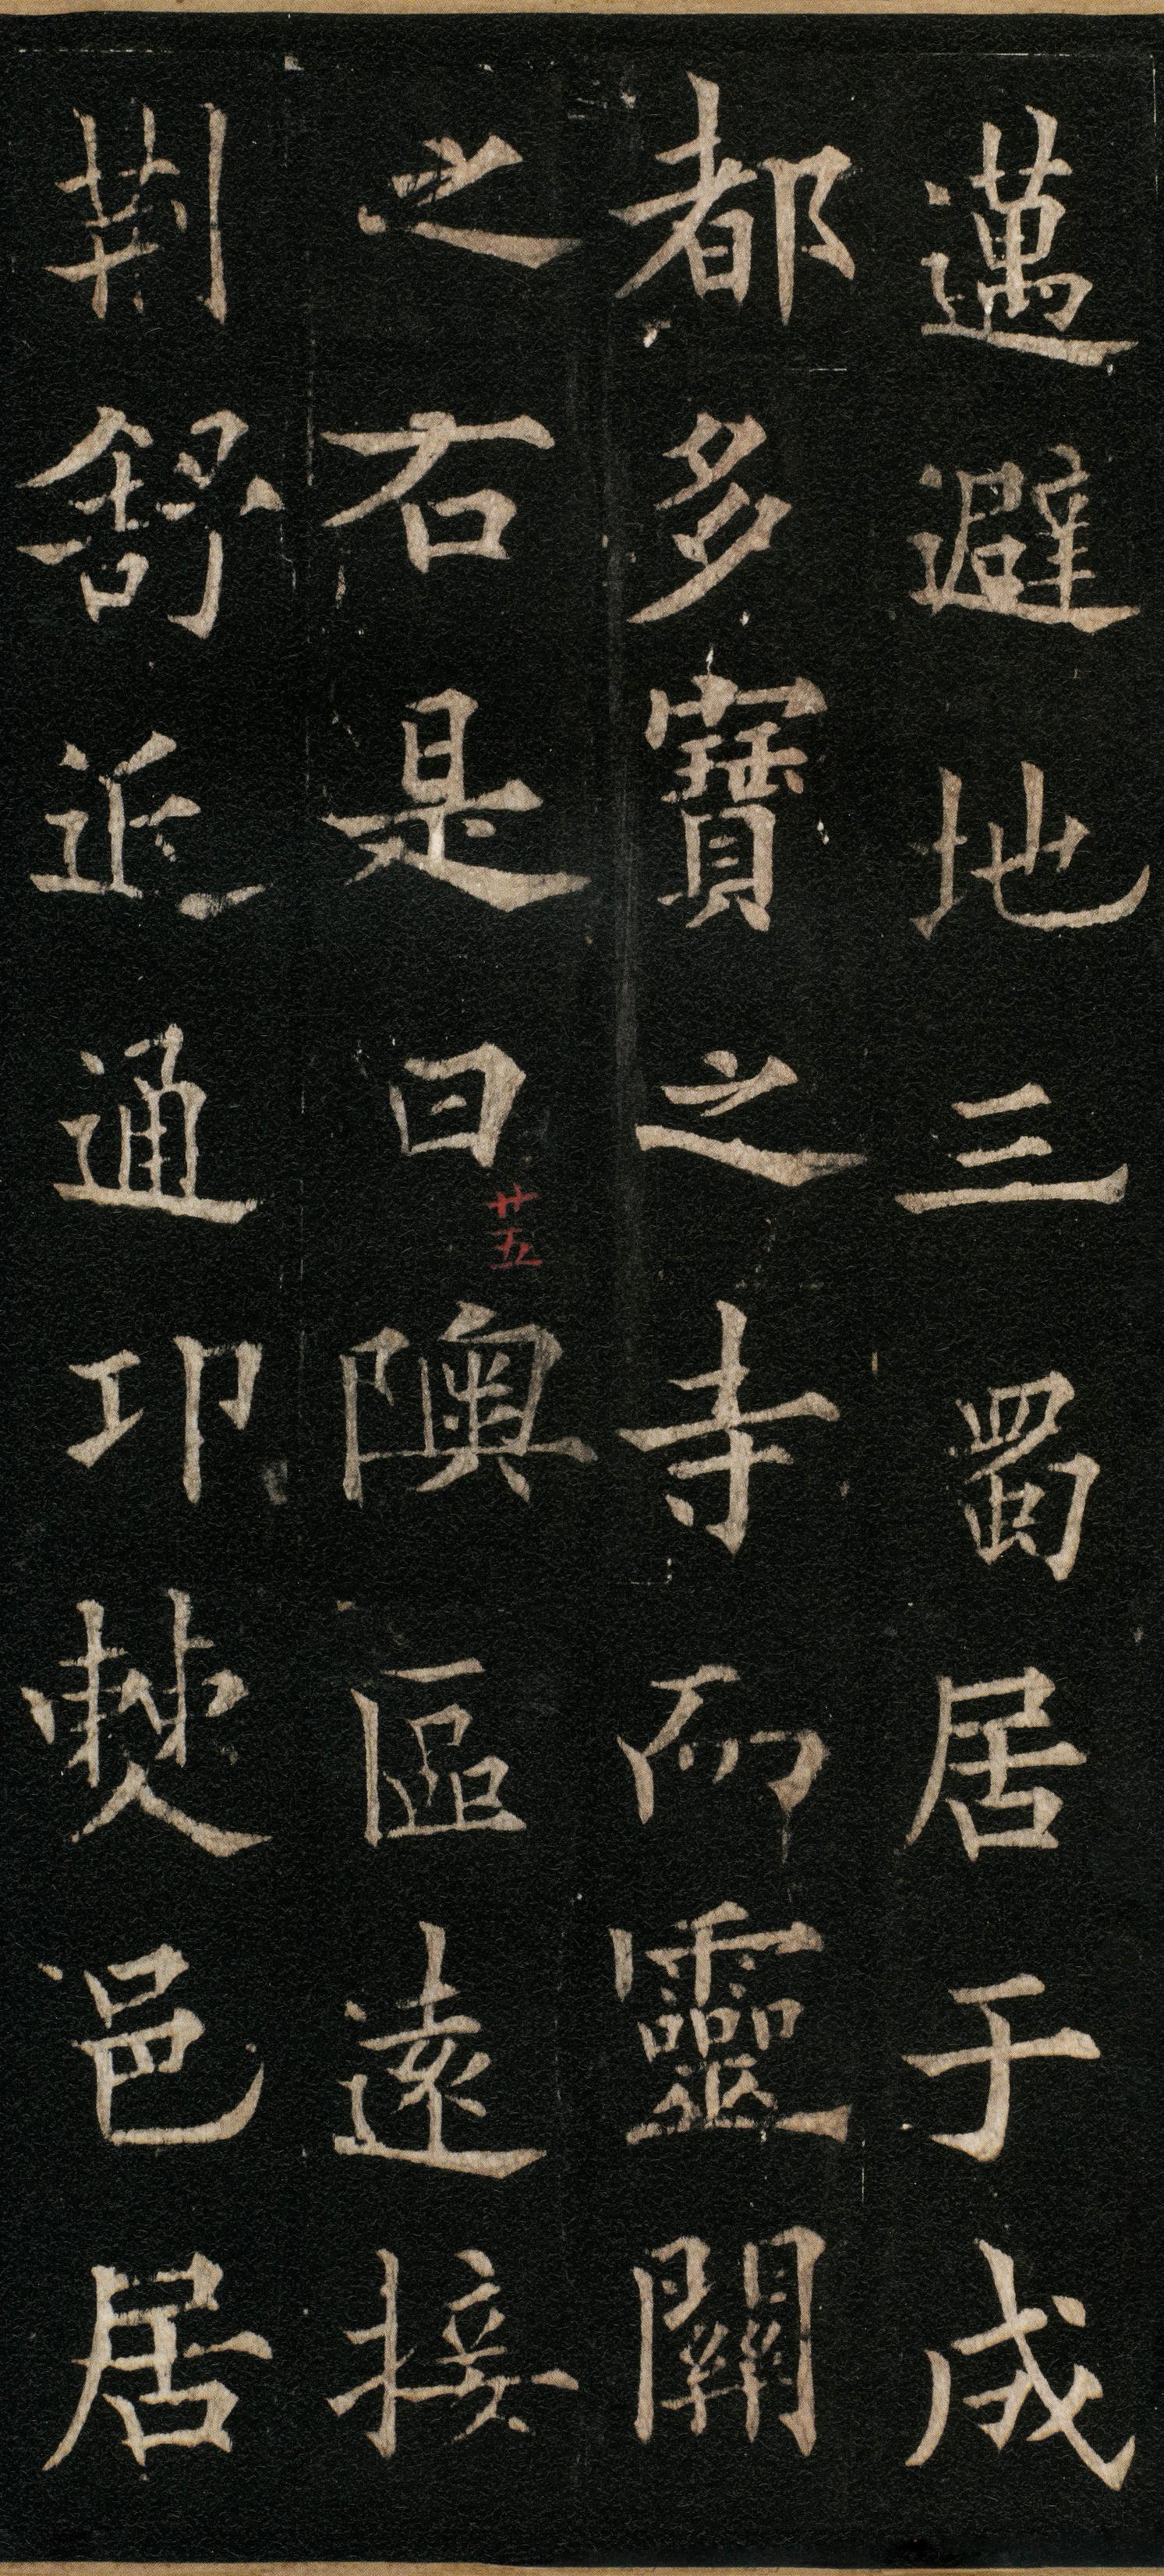 邁避地三蜀居于成
都多寶之寺而靈關
之右是曰隩區遠接
荆舒近通邛僰邑居
廿五